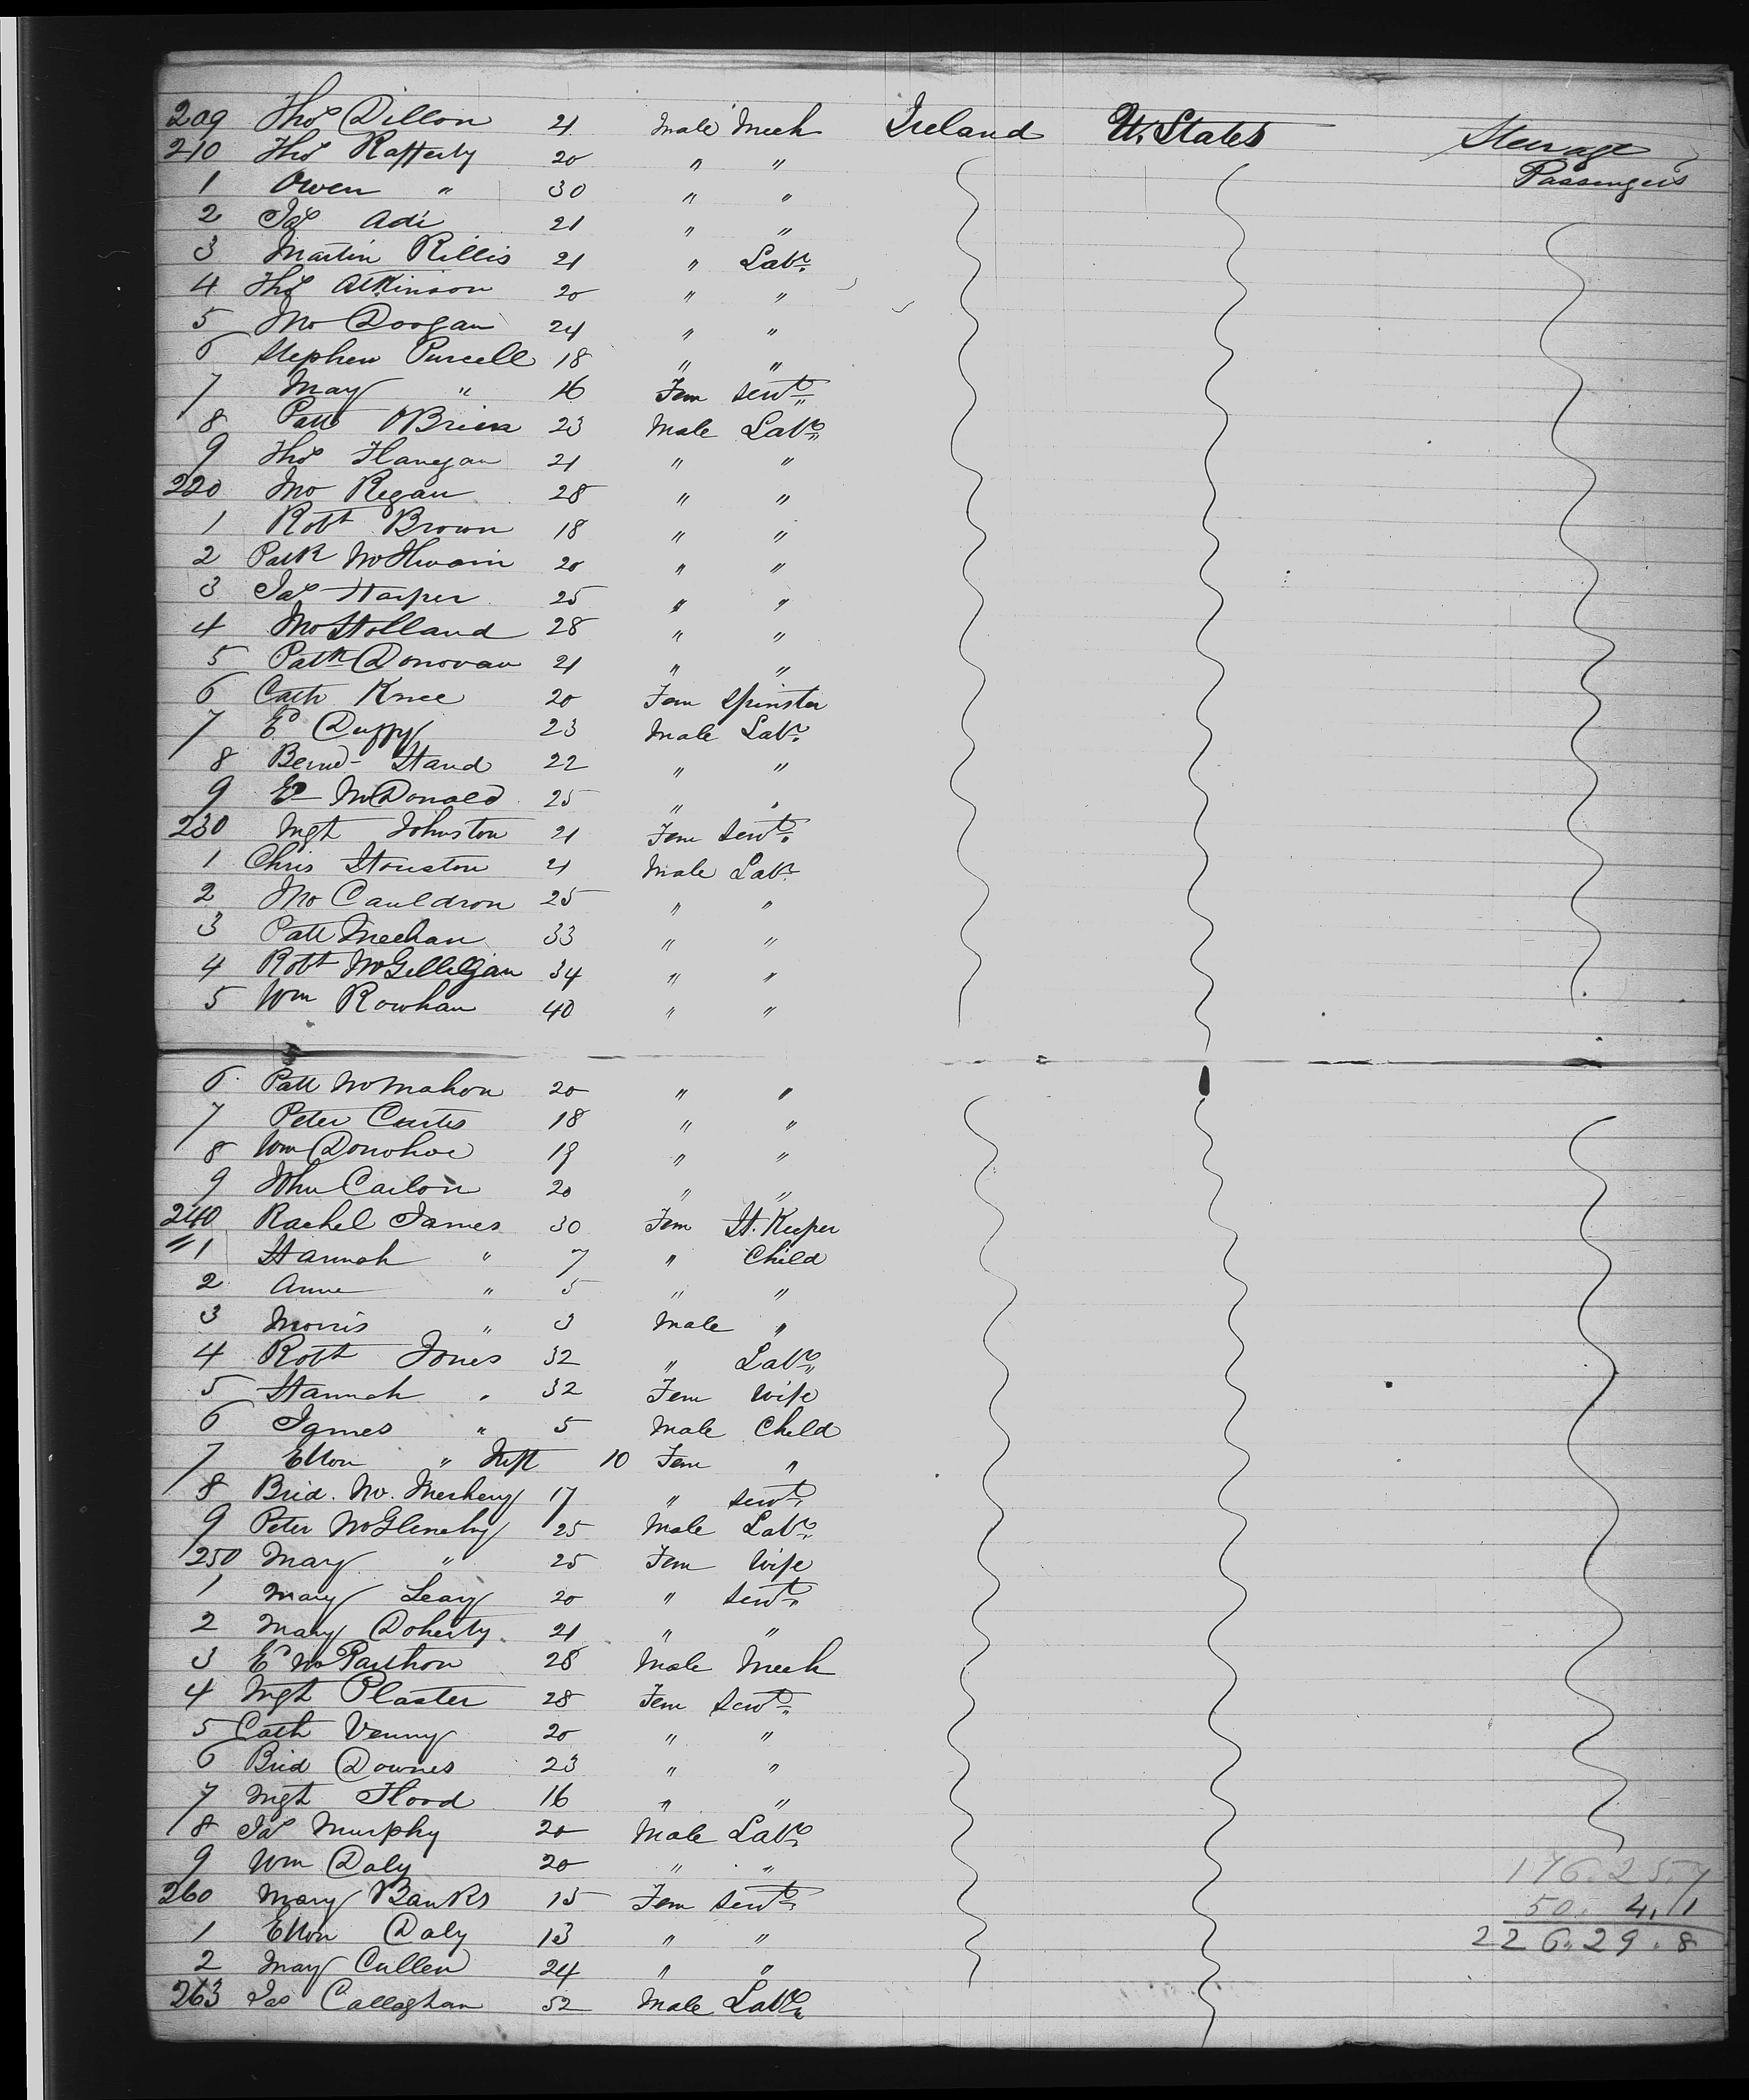 209 Thos Dillon 21 Male Mech Ireland U. States Steerage
210 Thos Rafferty 20 " " Passengers
1 Owen " 30 " "
2 Jas Adi 21 " "
3 Martin Killis 21 " Labr
4 Thos Atkinson 20 " "
5 Jno Doogan 24 " "
6 Stephen Purcell 18 " "
7 Mary " 16 Fem Servt
8 Patt OBrien 23 Male Labr
9 Thos Flanegan 21 " "
220 Jno Regan 28 " "
1 Robt Brown 18 " "
2 Patk McIlwain 20 " "
3 Jas Harper 25 " "
4 Jno Holland 28 " "
5 Patk Donovan 21 " "
6 Cath Knee 20 Fem Spinster
7 Ed Duffy 23 Male Labr
8 Bernd Hand 22 " "
9 Ed McDonald 25 " "
230 Mgt Johnston 21 Fem Servt
1 Chris Houston 21 Male Labr
2 Jno Cauldron 25 " "
3 Patt Meehan 33 " "
4 Robt McGilligan 34 " "
5 Wm Rowhan 40 " "
6 Patt McMahon 20 " "
7 Peter Curtis 18 " "
8 Wm Donohoe 19 " "
9 John Carlon 20 " "
240 Rachel James 30 Fem H. Keeper
" 1 Hannah " 7 " Child
2 Anne " 5 " "
3 Morris " 3 Male "
4 Robt Jones 32 " Labr
5 Hannah " 32 Fem Wife
6 James " 5 Male Child
7 Ellen " Inft 10 Fem "
8 Brid. Mc. 17 " Servt
9 Peter McGlenchy 25 Male Labr
250 Mary " 25 Fem Wife
1 Mary Leary 20 " Servt
2 Mary Doherty 21 " "
3 Ed McParthon 28 Male Mech
4 Mgt Plaster 28 Fem Servt
5 Cath Venny 20 " "
6 Brid Downes 23 " "
7 Mgt Flood 16 " "
8 Jas Murphy 20 Male Labr
9 Wm Daly 20 " " 176.25.7
260 Mary Banks 15 Fem Servt 50. 4.1
1 Ellen Daly 13 " " 226.29.8
2 Mary Cullen 24 " "
263 Jas Callaghan 52 Male Labr